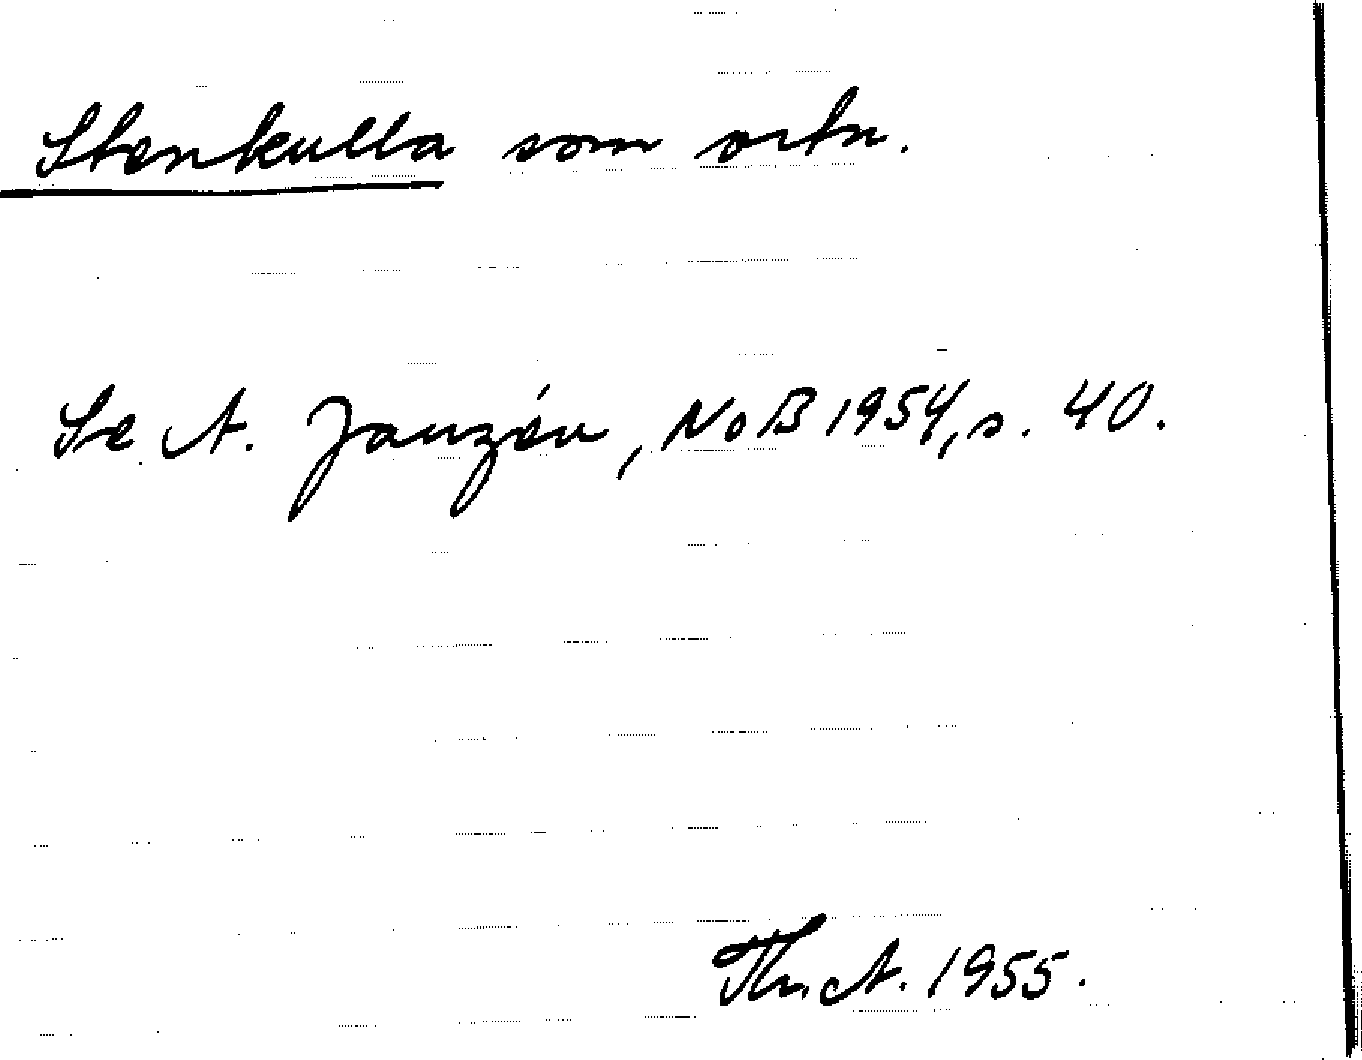 Stenkulla som ortn.
Se A. Janzén, NoB 1954, s. 40.
Th. A. 1955.